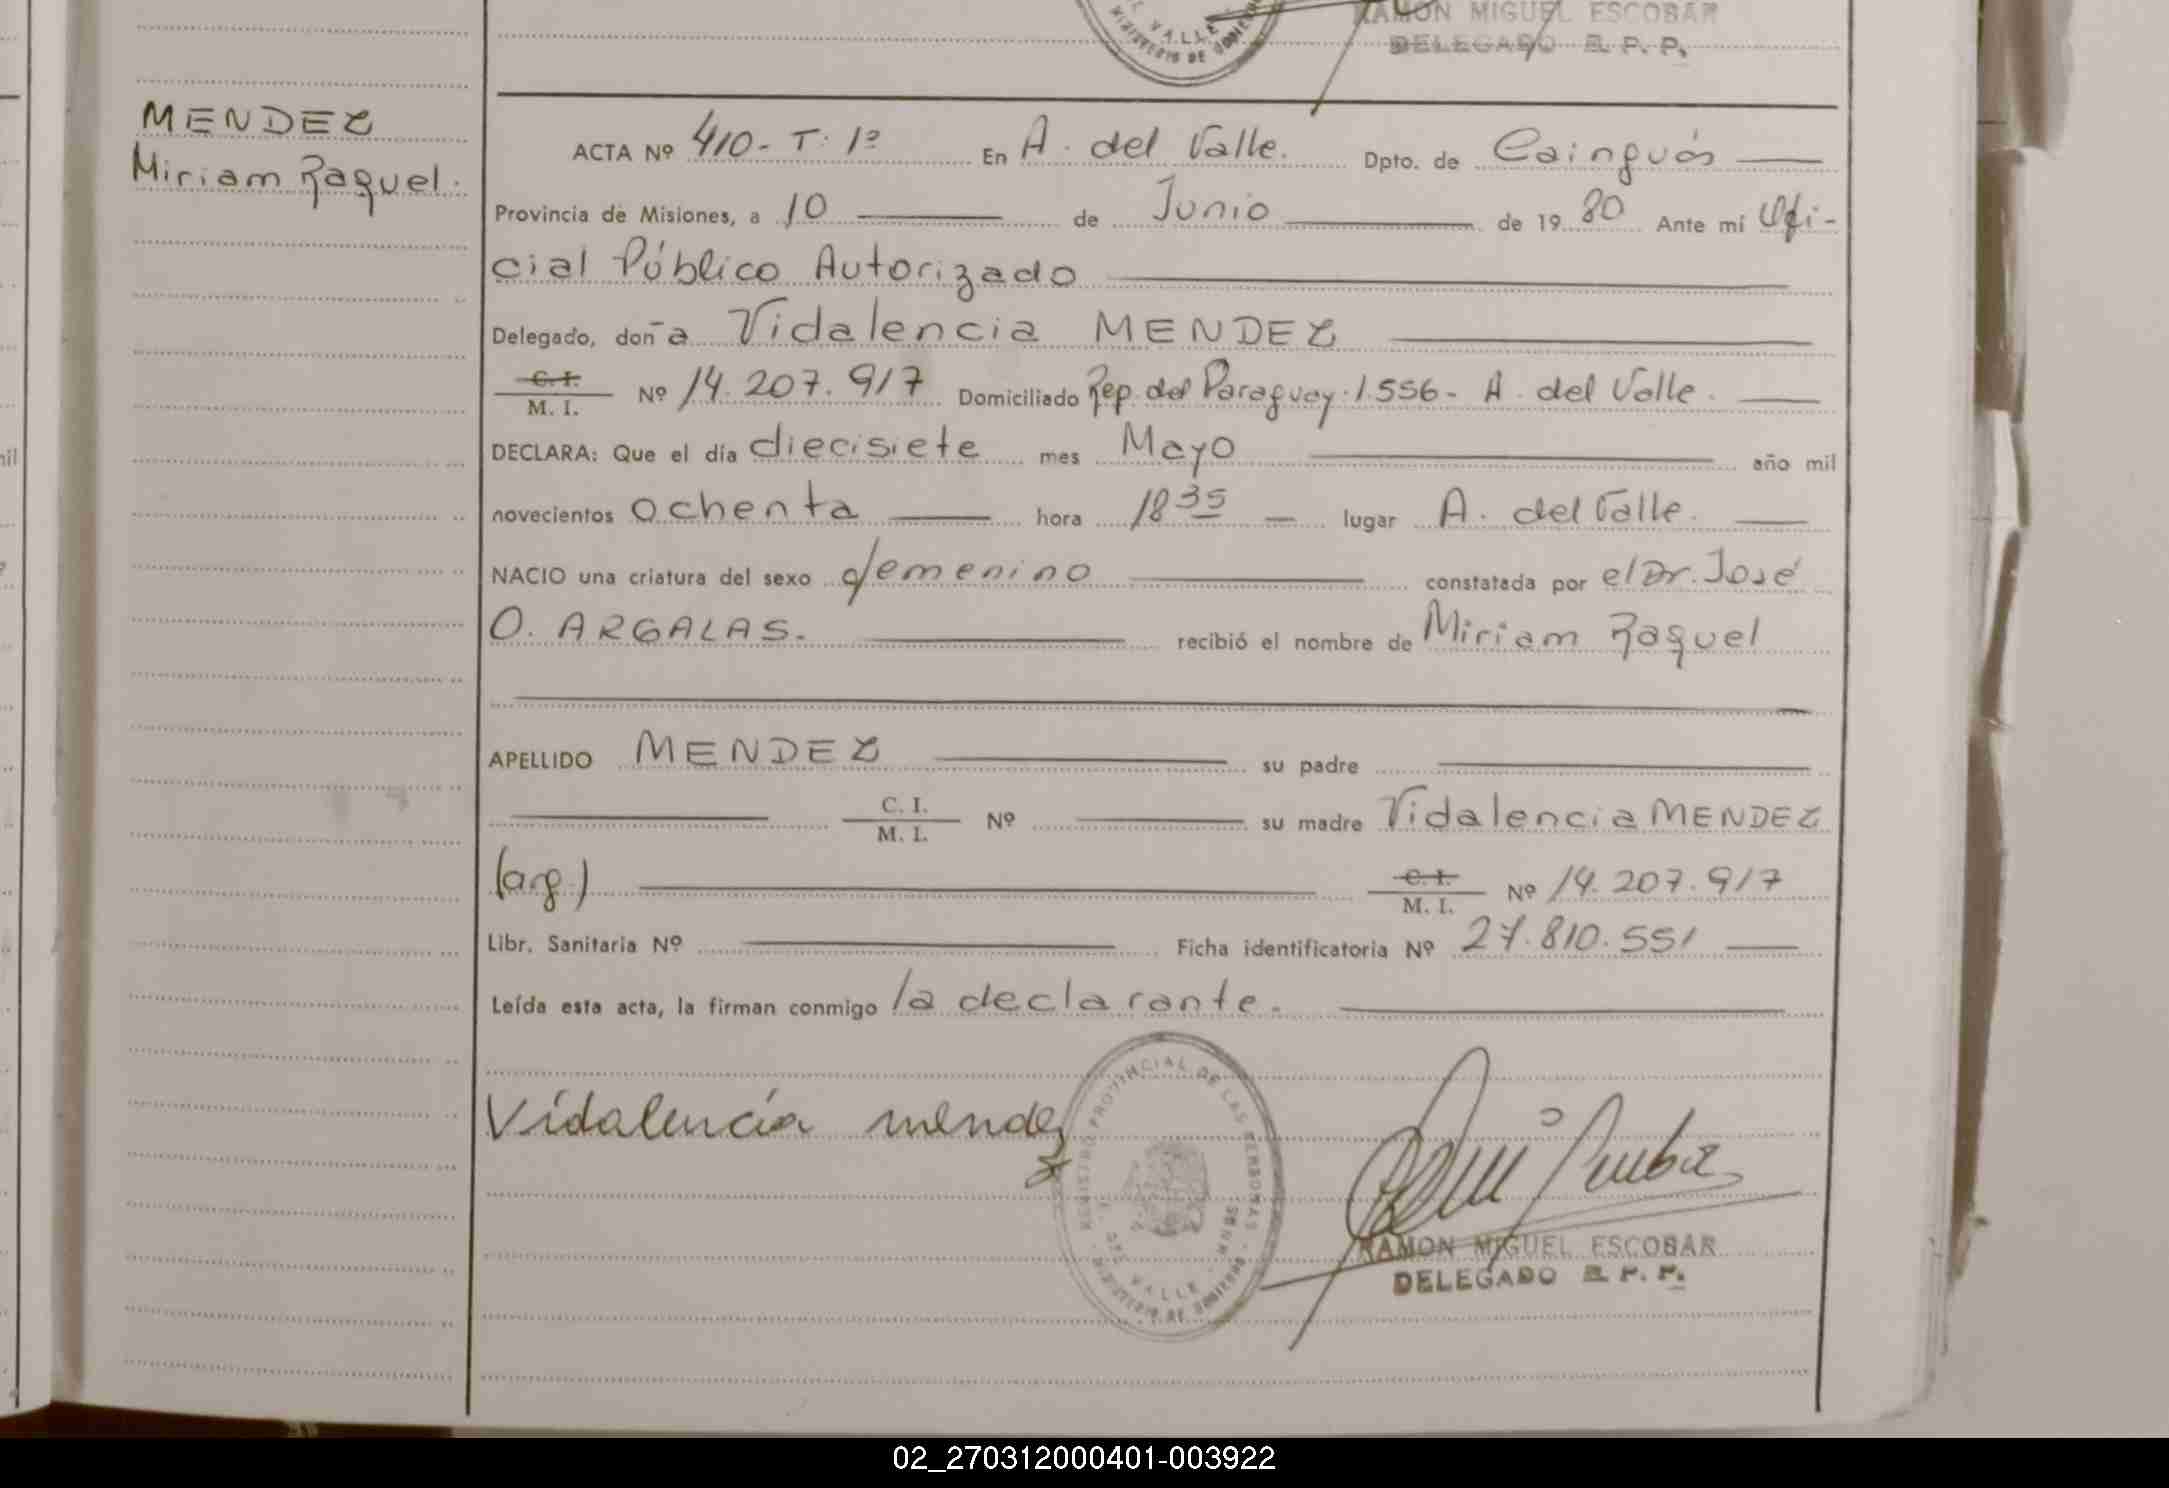 VALLE
MINISTERIO DE GOBIERNO
RAMON MIGUEL ESCOBAR
DELEGADO R. P. P.
MENDEZ
Miriam Raquel.
ACTA Nº 410- T: 1º En A. del Valle. Dpto. de Cainguás
Provincia de Misiones, a 10 de Junio de 19 80 Ante mí Ofi-
cial Público Autorizado
Delegado, doña Vidalencia MENDEZ
C. I.
M. I. Nº 14.207.917 Domiciliado Rep. del Paraguay 1.556- A. del Valle.
DECLARA: Que el día diecisiete mes Mayo año mil
novecientos ochenta hora 18 35 lugar A. del Valle.
NACIO una criatura del sexo femenino constatada por el Dr. José
O. ARGALAS. recibió el nombre de Miriam Raquel
APELLIDO MENDEZ su padre
C. I.
M. I. Nº su madre Vidalencia MENDEZ
(arg.) C. I.
M. I. Nº 14.207.917
Libr. Sanitaria Nº Ficha identificatoria Nº 27.810.551
Leída esta acta, la firman conmigo la declarante.
Vidalencia mendez
REGISTRO PROVINCIAL DE LAS PERSONAS
A. DEL VALLE - MNES
MINISTERIO DE GOBIERNO
RAMON MIGUEL ESCOBAR
DELEGADO R. P. P.
mil
02_270312000401-003922